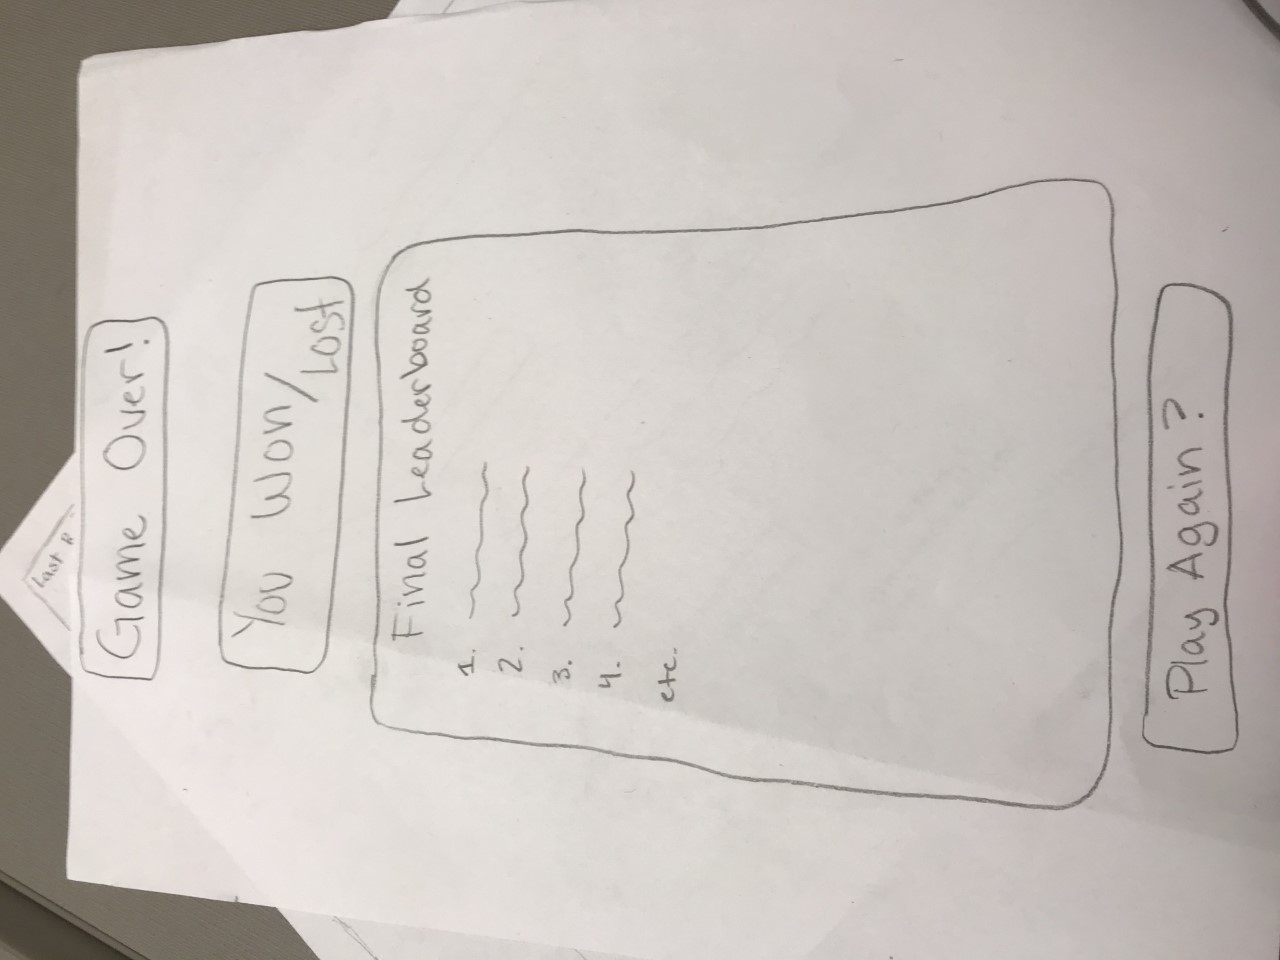 Game Over!
You Won/
Lost
Final Leaderboard
1.
2.
3.
4.
etc.
Play Again?
Last R